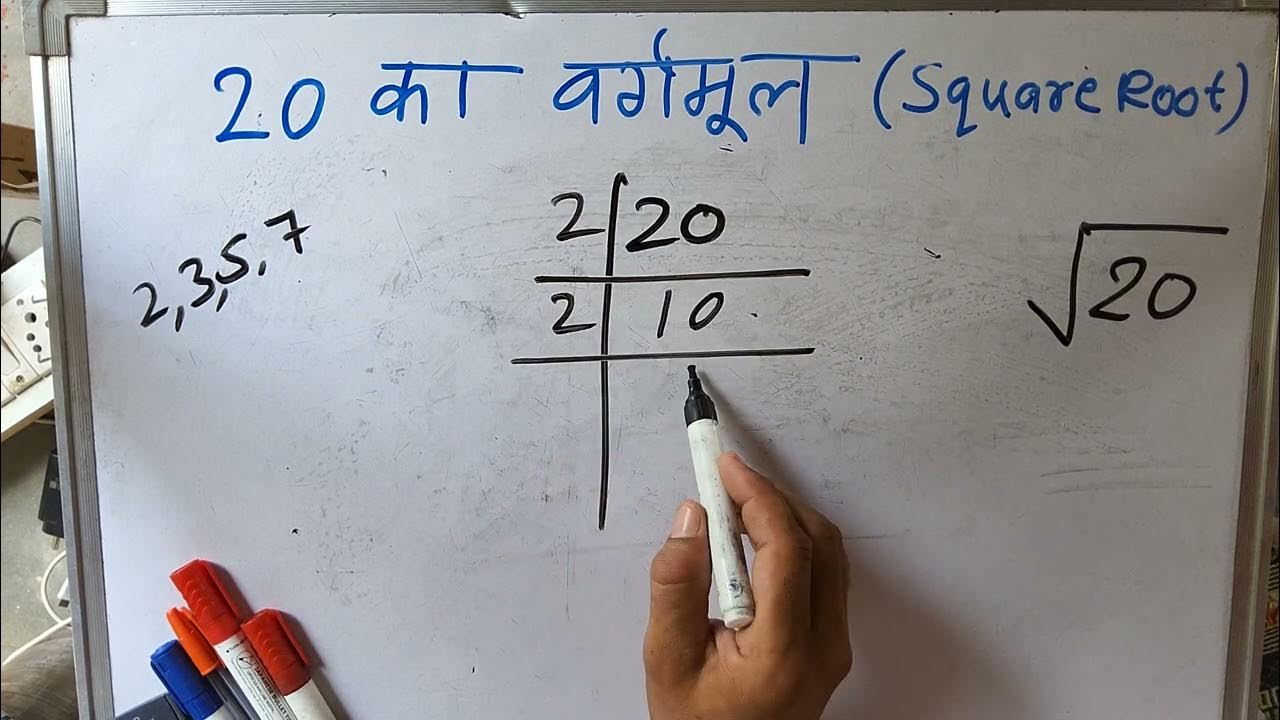 20 का वर्गमूल (Square Root)
2,3,5,7
2 20
2 10
√20